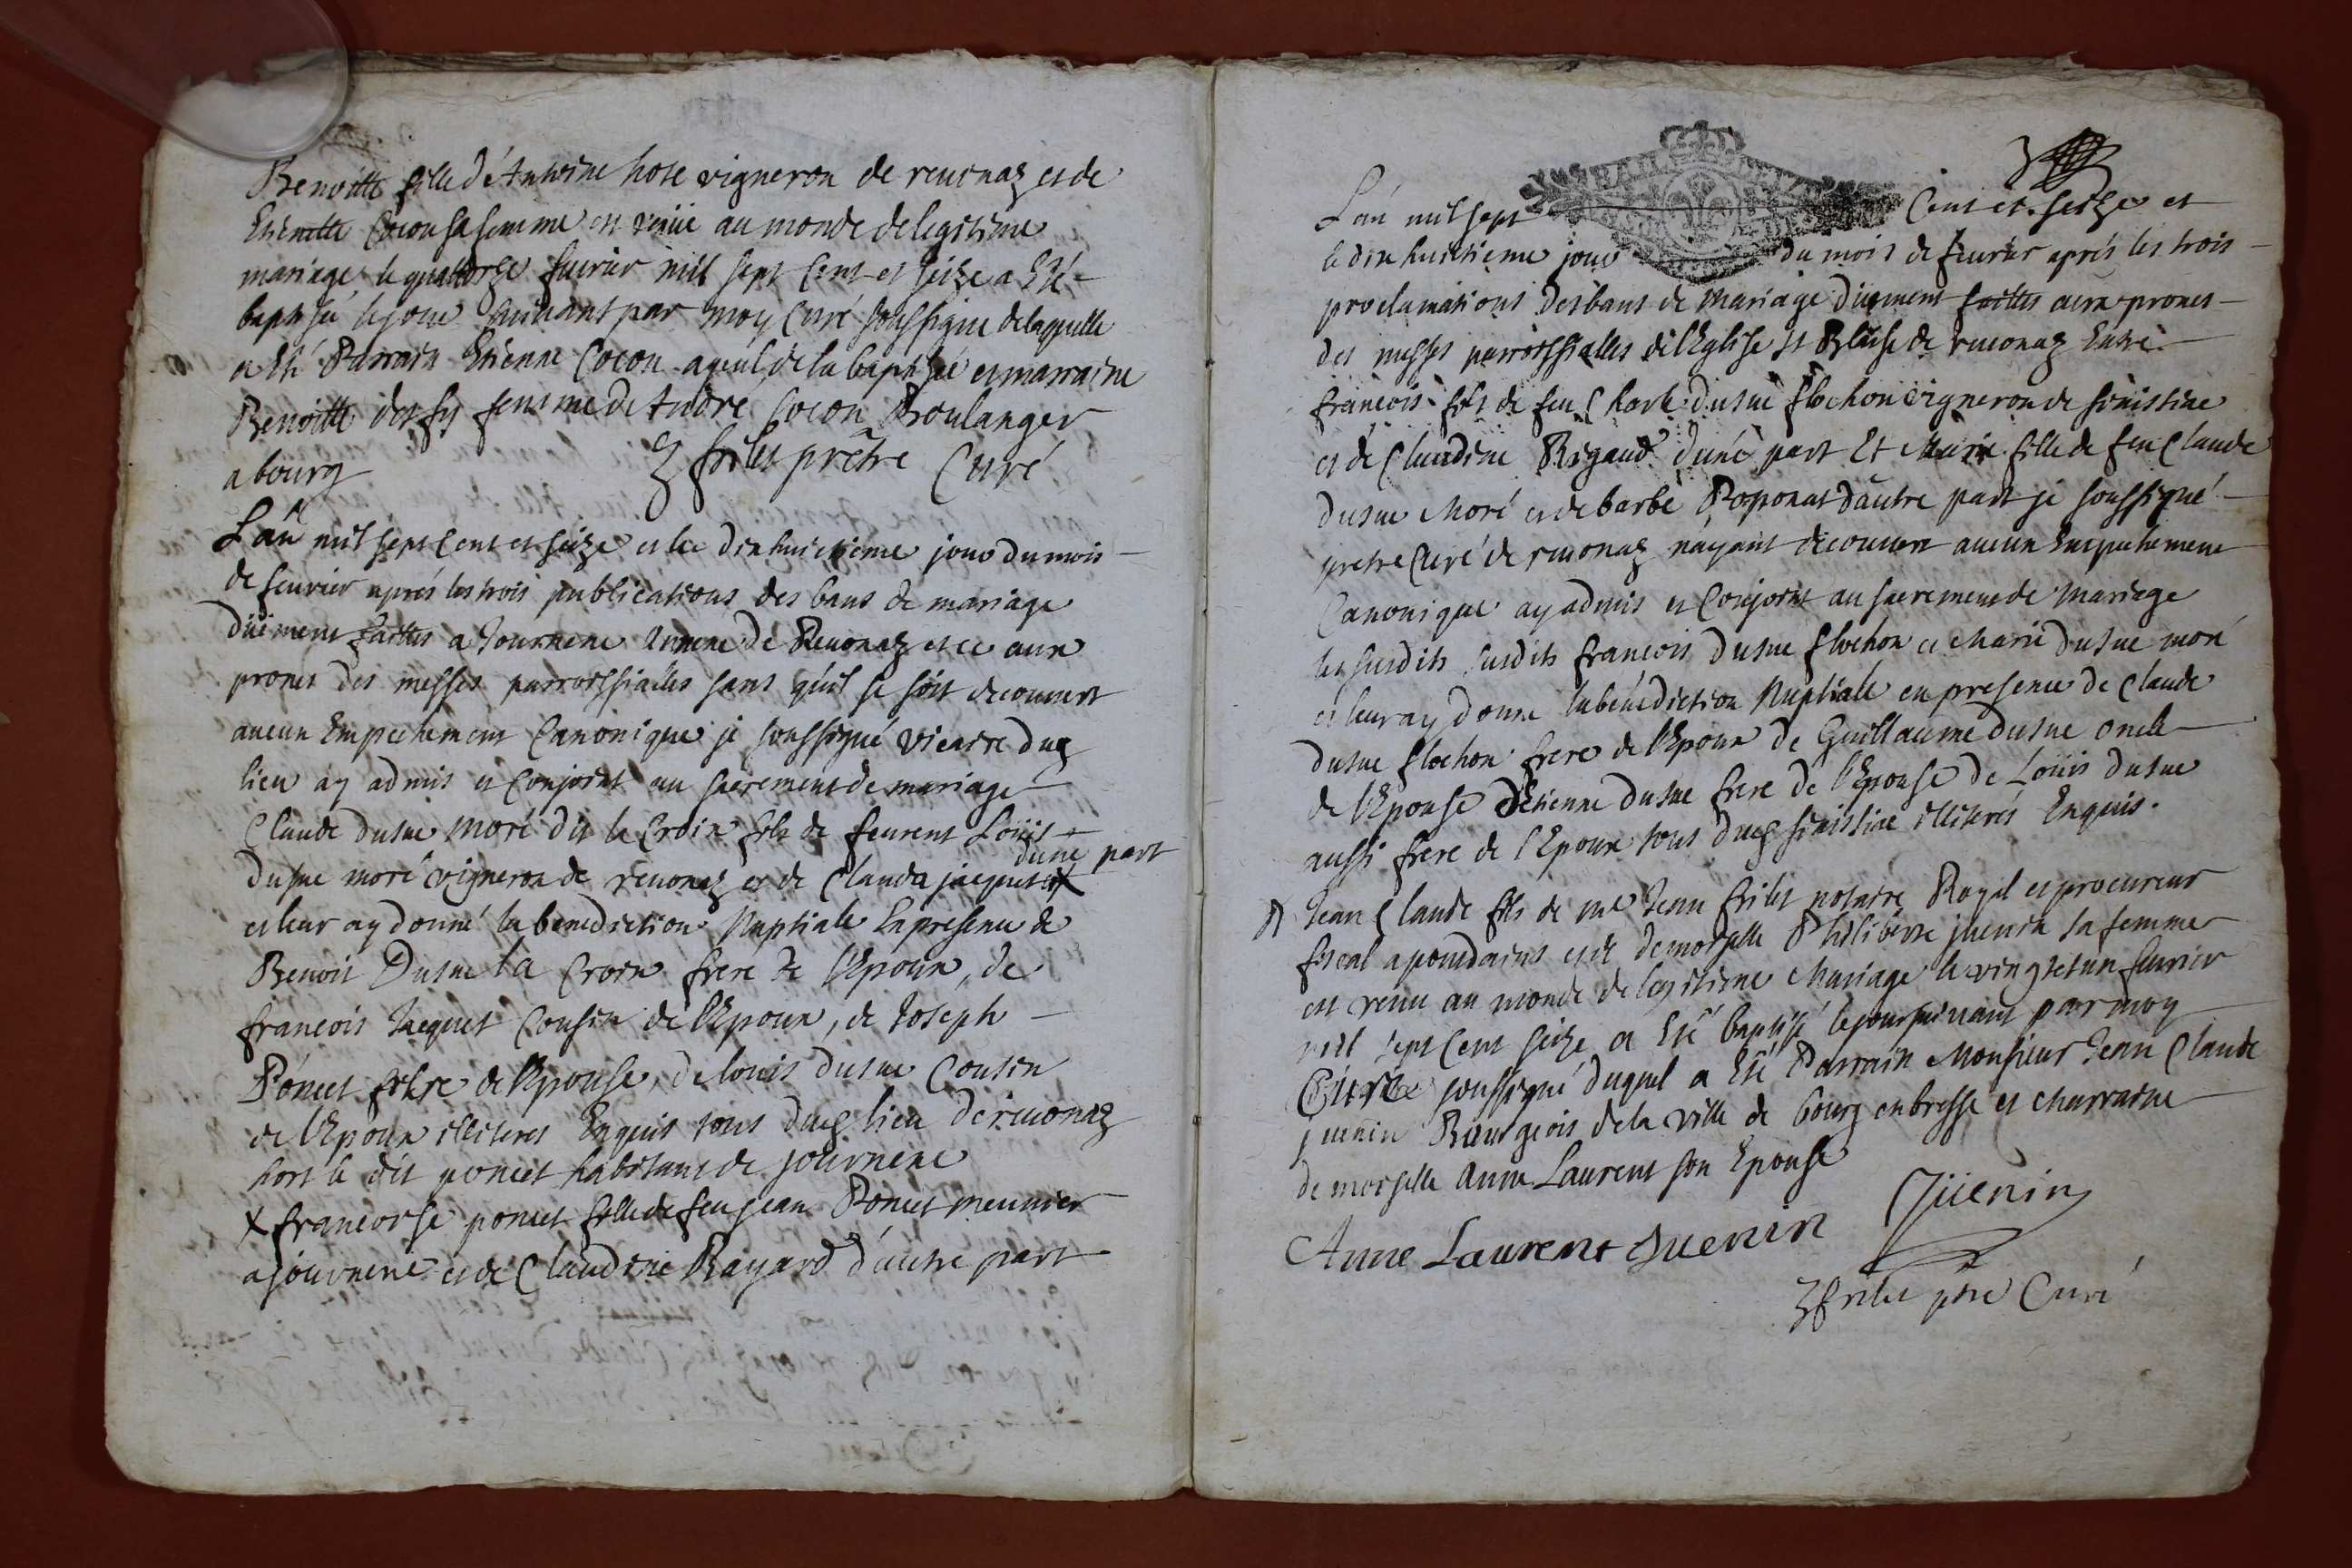 Benoitte fille d'Antoine hote vigneron de reuonaz et de
Etienette Cocon sa femme est venüe au monde de legitime
mariage le quattorze feurier mil sept cent et seize a Eté
baptisée le jour suiuant par moy Curé soussigné de laquelle
a Eté Parrain Etienne Cocon ayeul de la baptisée et marraine
Benoitte femme de Andre Cocon Boulanger
a bourg frilet prêtre Curé
L'an mil sept cent et seize et le dix huictieme jour du mois
de feurier aprés les trois publications des bans de mariage
düement faittes a Journens de Reuonaz et ce aux
prones des messes parroissialles sans qu'il se soit decouuert
aucun Empechement Canonique je soussigné vicaire dud
lieu ay admis et Conjoint au sacrement de mariage
Claude dusue moré dit la Croix fils de Louis
d'une part
dusue moré vigneron de reuonaz et de Clauda jacquet X
et leur ay donné la benediction Nuptiale En presence de
Benoit Dusue la Croix frere de l'Epoux, de
francois Jacquet Cousin de l'Epoux, de Joseph
Poncet frere de l'Epouse, de louis dusue Cousin
de l'Epoux illiteres Enquis tous dud lieu de reuonaz
hors le dit poncet habitant de journens
X francoise poncet fille de feu jean Poncet meunier
a journens et de Claudine Rayard d'autre part
L'an mil sept Cent et seize et
le dix huictieme jour du mois de feurier aprés les trois
proclamations des bans de mariage düement faittes aux prones
des messes parroissialles de l'Eglise St Blaise de reuonaz Entre
francois fils de feu Charle dusue flochon vigneron de
et de Claudine Rigaud d'une part Et Marie fille de feu Claude
dusue Moré et de barbe Roponat d'autre part je soussigné
pretre Curé de reuonaz n'ayant decouuert aucun Empechement
Canonique ay admis et Conjoint au sacrement de mariage
les susdits susdits francois dusue flochon et Marie dusue moré
et leur ay donne la bénédiction Nuptiale en presence de Claude
dusue flochon frere de l'Epoux de Guillaume dusue oncle
de l'Epouse d'Etienne dusue frere de l'Epouse de Loüis dusue
aussi frere de l'Epoux tous dud illiterés Enquis.
Jean Claude fils de me Jean frilet notaire Royal et procureur
fiscal a pondains et de demoiselle Philiberte juenin sa femme
est venu au monde de legitime Mariage le vingt et un feurier
mil sept cent seize a Eté baptisé le jour suiuant par moy
Curé soussigné duquel a Eté Parrain Monsieur Jean Claude
juenin Bourgeois de la ville de bourg en bresse et Marraine
demoiselle Anne Laurent son Epouse
Jüenin
Anne Laurent Juenin
frilet ptre Curé